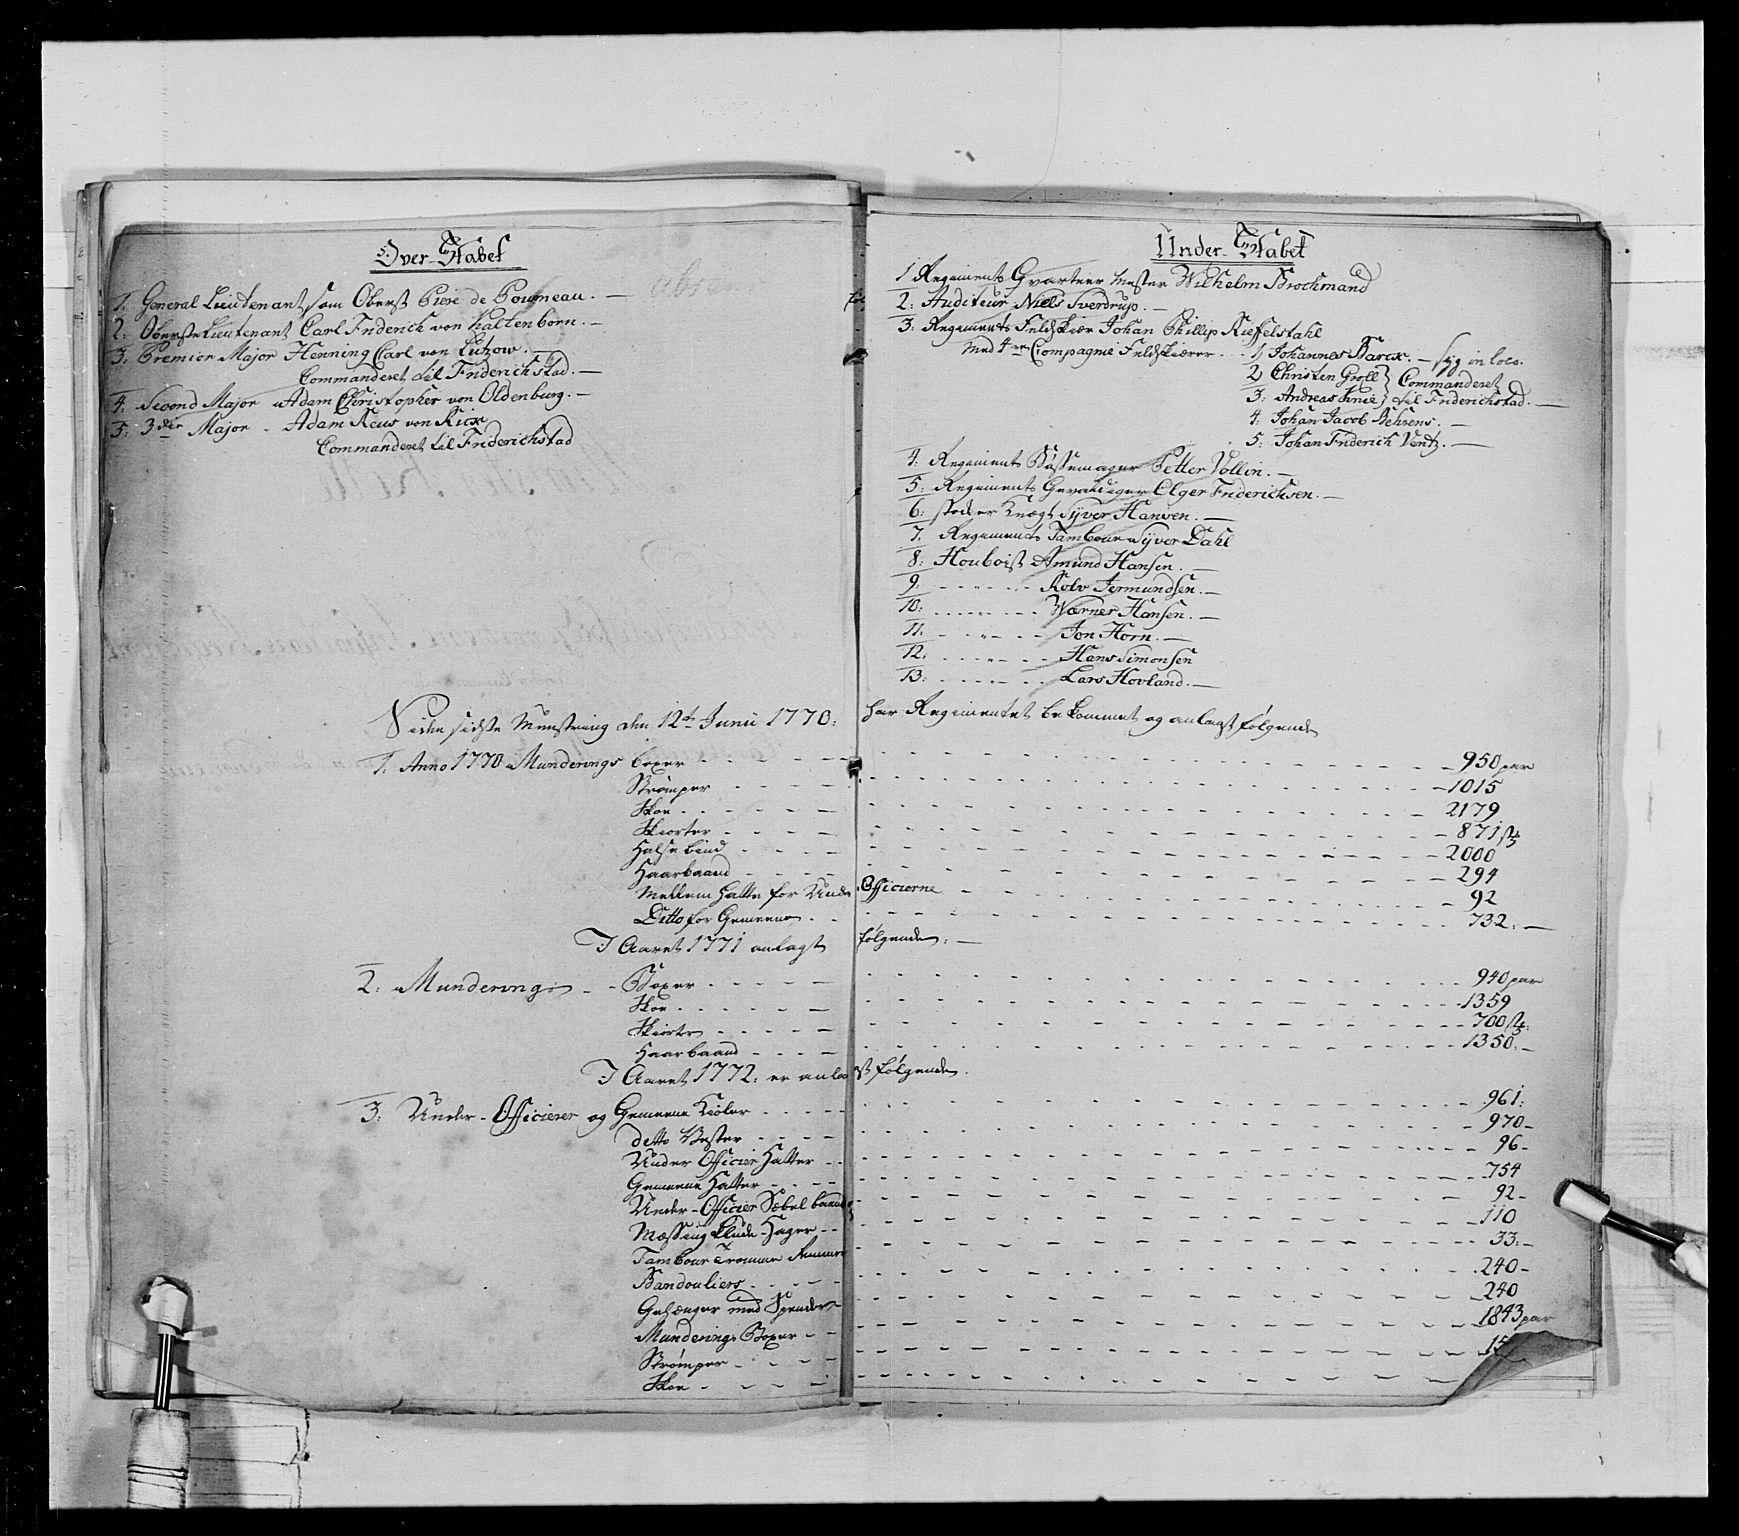 Over-Stabet
1: General Lieutenant som Oberst Piere de Poumeau. —
2: OberstLieutenant Carl Friderich von Kaltenborn. —
3: Premier Major Henning Carl von Lutzow. —
Commanderet til Friderichstad. —
4: Second Major Adam Christopher von Oldenburg. —
5: 3die Major - Adam Reus von Rice
Commanderet til Friderichstad
Under-Stabet
1 Regiments Qvarteer Mester Wilhelm Brochmand
2: Auditeur Niels Sverdrup. —
3: Regiments Feldskiær Johan Phillip Kieffelstahl
Med 4re Compagnie Feldskiærer - - - 1, Johannes Barcx. — syg in loco.
2, Christen Groll } Commanderet
3: Andreas Knie } til Friderichstad. —
4: Johan Jacob Behrens. —
5: Johan Friderich Ventz. —
4: Regiments Bøssemager Petter Vollin. —
5: Regiments Gevaldiger Olger Friderichsen. —
6: Stocker Knægt Syver Hansen. —
7. Regiments Tambour Syver Dahl
8: Houboist Amund Hansen. —
9: - - - - - - Rolv Jermundsen. —
10: - - - - - - Werner Hansen. —
11: - - - - - - Jon Horn. —
12: - - - - - - Hans Simonsen
13: - - - - - - Lars Hovland. —
Siden sidste Mynstring den 12te Junii 1770: har Regimentet bekommet og anlagt følgende
1: Anno 1770 Munderings boxer - - - - 950 par
Strømper - - - - 1015
Skoe - - - - 2179
Skiorter - - - - 871 stk
Halsebind - - - - 2000
Haarbaand - - - - 294
Mellem Hatte for Under Officierne - - - - 92
Ditto for Gemeene - - - - 732: —
I Aaret 1771 anlagt følgende: —
2: Munderings - - Boxer - - - - 940 par
Skoe - - - - 1359
Skiorter - - - - 700 stk:
Haarbaand - - - - 1350: —
I Aaret 1772: er anlagt følgende.
3: Under-Officierer og Gemeene Kioler - - - - 961:
ditto Vester - - - - 970 -
Under Officier Hatter - - - - 96 -
Gemeene Hatter - - - - 754
Under-Officier Sæbel baand - - - - 92 -
Mæssing - - - - 110
Tambour Tromme - - - - 33: —
Bandouliers - - - - 240 -
Gehænger med Spender - - - - 240
Munderings Boxer - - - - 1843 par
Strømper - - - -
Skoe - - - -